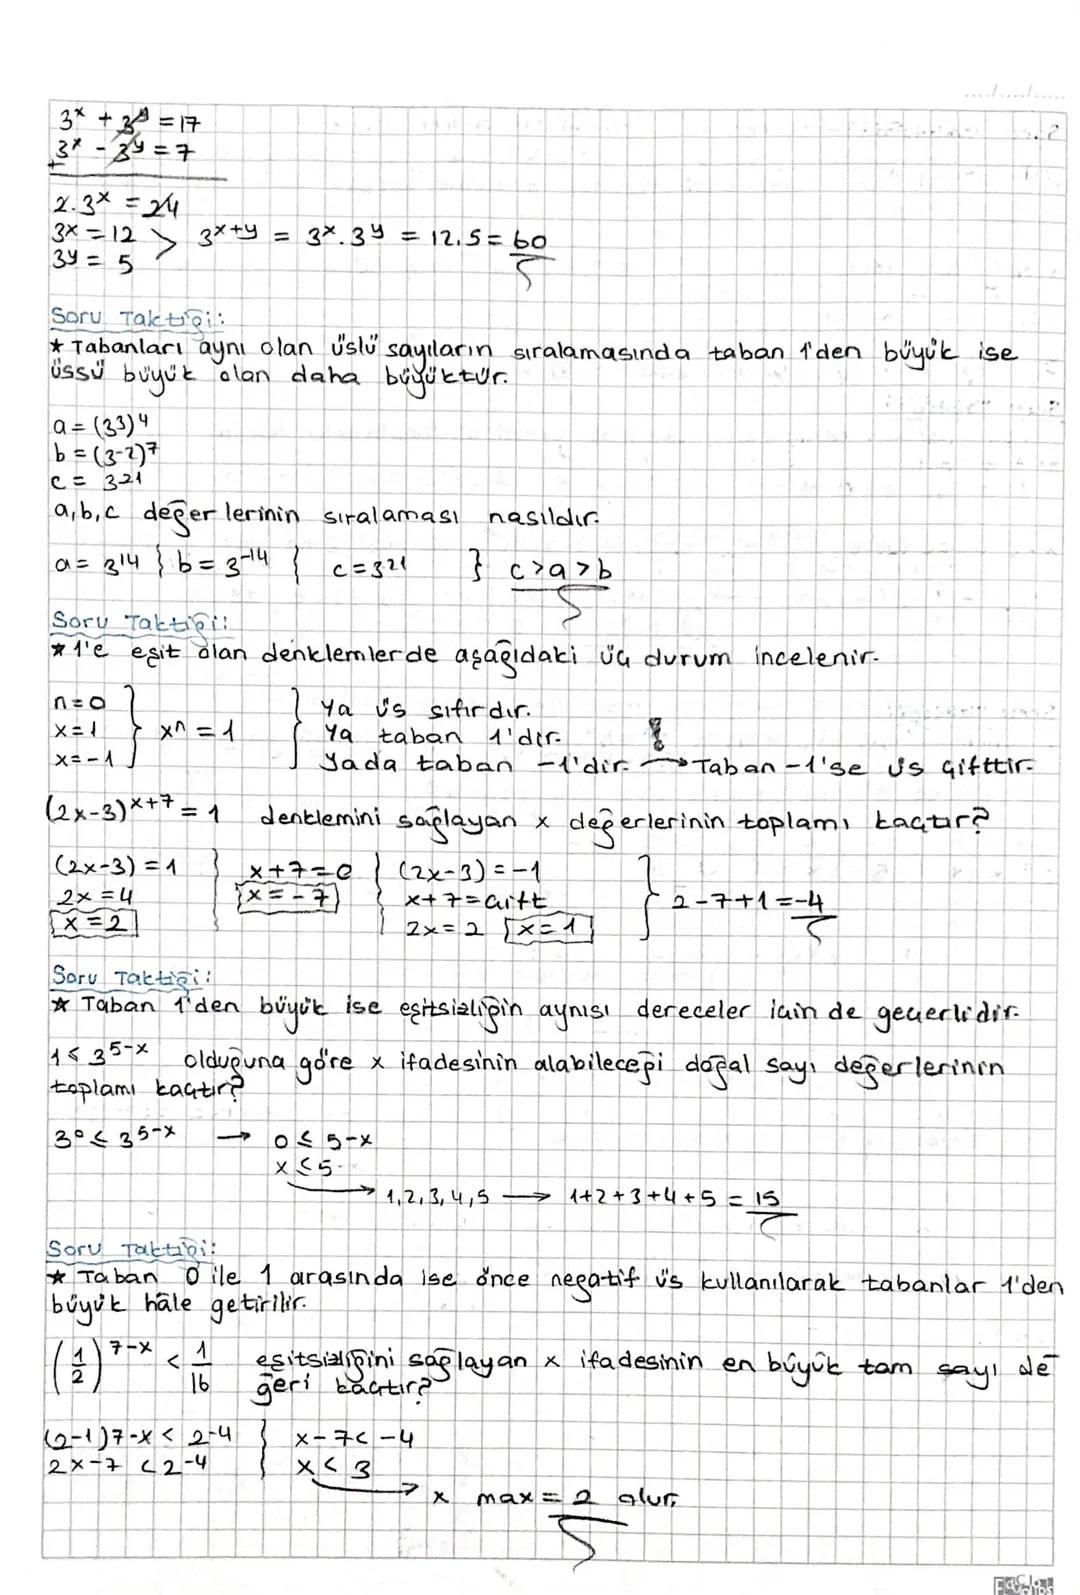 3ˣ + 3ʸ = 17
3ˣ - 3ʸ = 7
+
2.3ˣ = 24
3ˣ = 12 > 3ˣ⁺ʸ = 3ˣ.3ʸ = 12.5 = 60
3ʸ = 5
Soru Taktiği:
* Tabanları aynı olan üslü sayıların sıralamasında taban 1'den büyük ise
üssü büyük olan daha büyüktür.
a = (3³)⁴
b = (3⁻²)⁷
c = 3²¹
a,b,c değerlerinin sıralaması nasıldır.
a = 3¹⁴ } b = 3⁻¹⁴ { c = 3²¹ } c > a > b
Soru Taktiği:
* 1'e eşit olan denklemlerde aşağıdaki üç durum incelenir.
n = 0 } Ya üs sıfırdır.
x = 1 } xⁿ = 1 } Ya taban 1'dir. !
x = -1 } Yada taban -1'dir. → Taban -1'se üs çifttir.
(2x-3)ˣ⁺⁷ = 1 denklemini sağlayan x değerlerinin toplamı kaçtır?
(2x-3) = 1 } x+7=0 } (2x-3) = -1
2x = 4 x = -7 x+7 = çift } 2-7+1 = -4
x = 2 2x = 2 x = 1
Soru Taktiği:
* Taban 1'den büyük ise eşitsizliğin aynısı dereceler için de geçerlidir.
1 ≤ 3⁵⁻ˣ olduğuna göre x ifadesinin alabileceği doğal sayı değerlerinin
toplamı kaçtır?
3⁰ ≤ 3⁵⁻ˣ → 0 ≤ 5-x
x ≤ 5.
→ 1,2,3,4,5 → 1+2+3+4+5 = 15
Soru Taktiği:
* Taban 0 ile 1 arasında ise önce negatif üs kullanılarak tabanlar 1'den
büyük hale getirilir.
(1/2)⁷⁻ˣ < 1/16 eşitsizliğini sağlayan x ifadesinin en büyük tam sayı de
ğeri kaçtır?
(2-1)7-x < 2-4 } x-7 < -4
2x-7 < 2-4 } x < 3
→ x max = 2 olur.